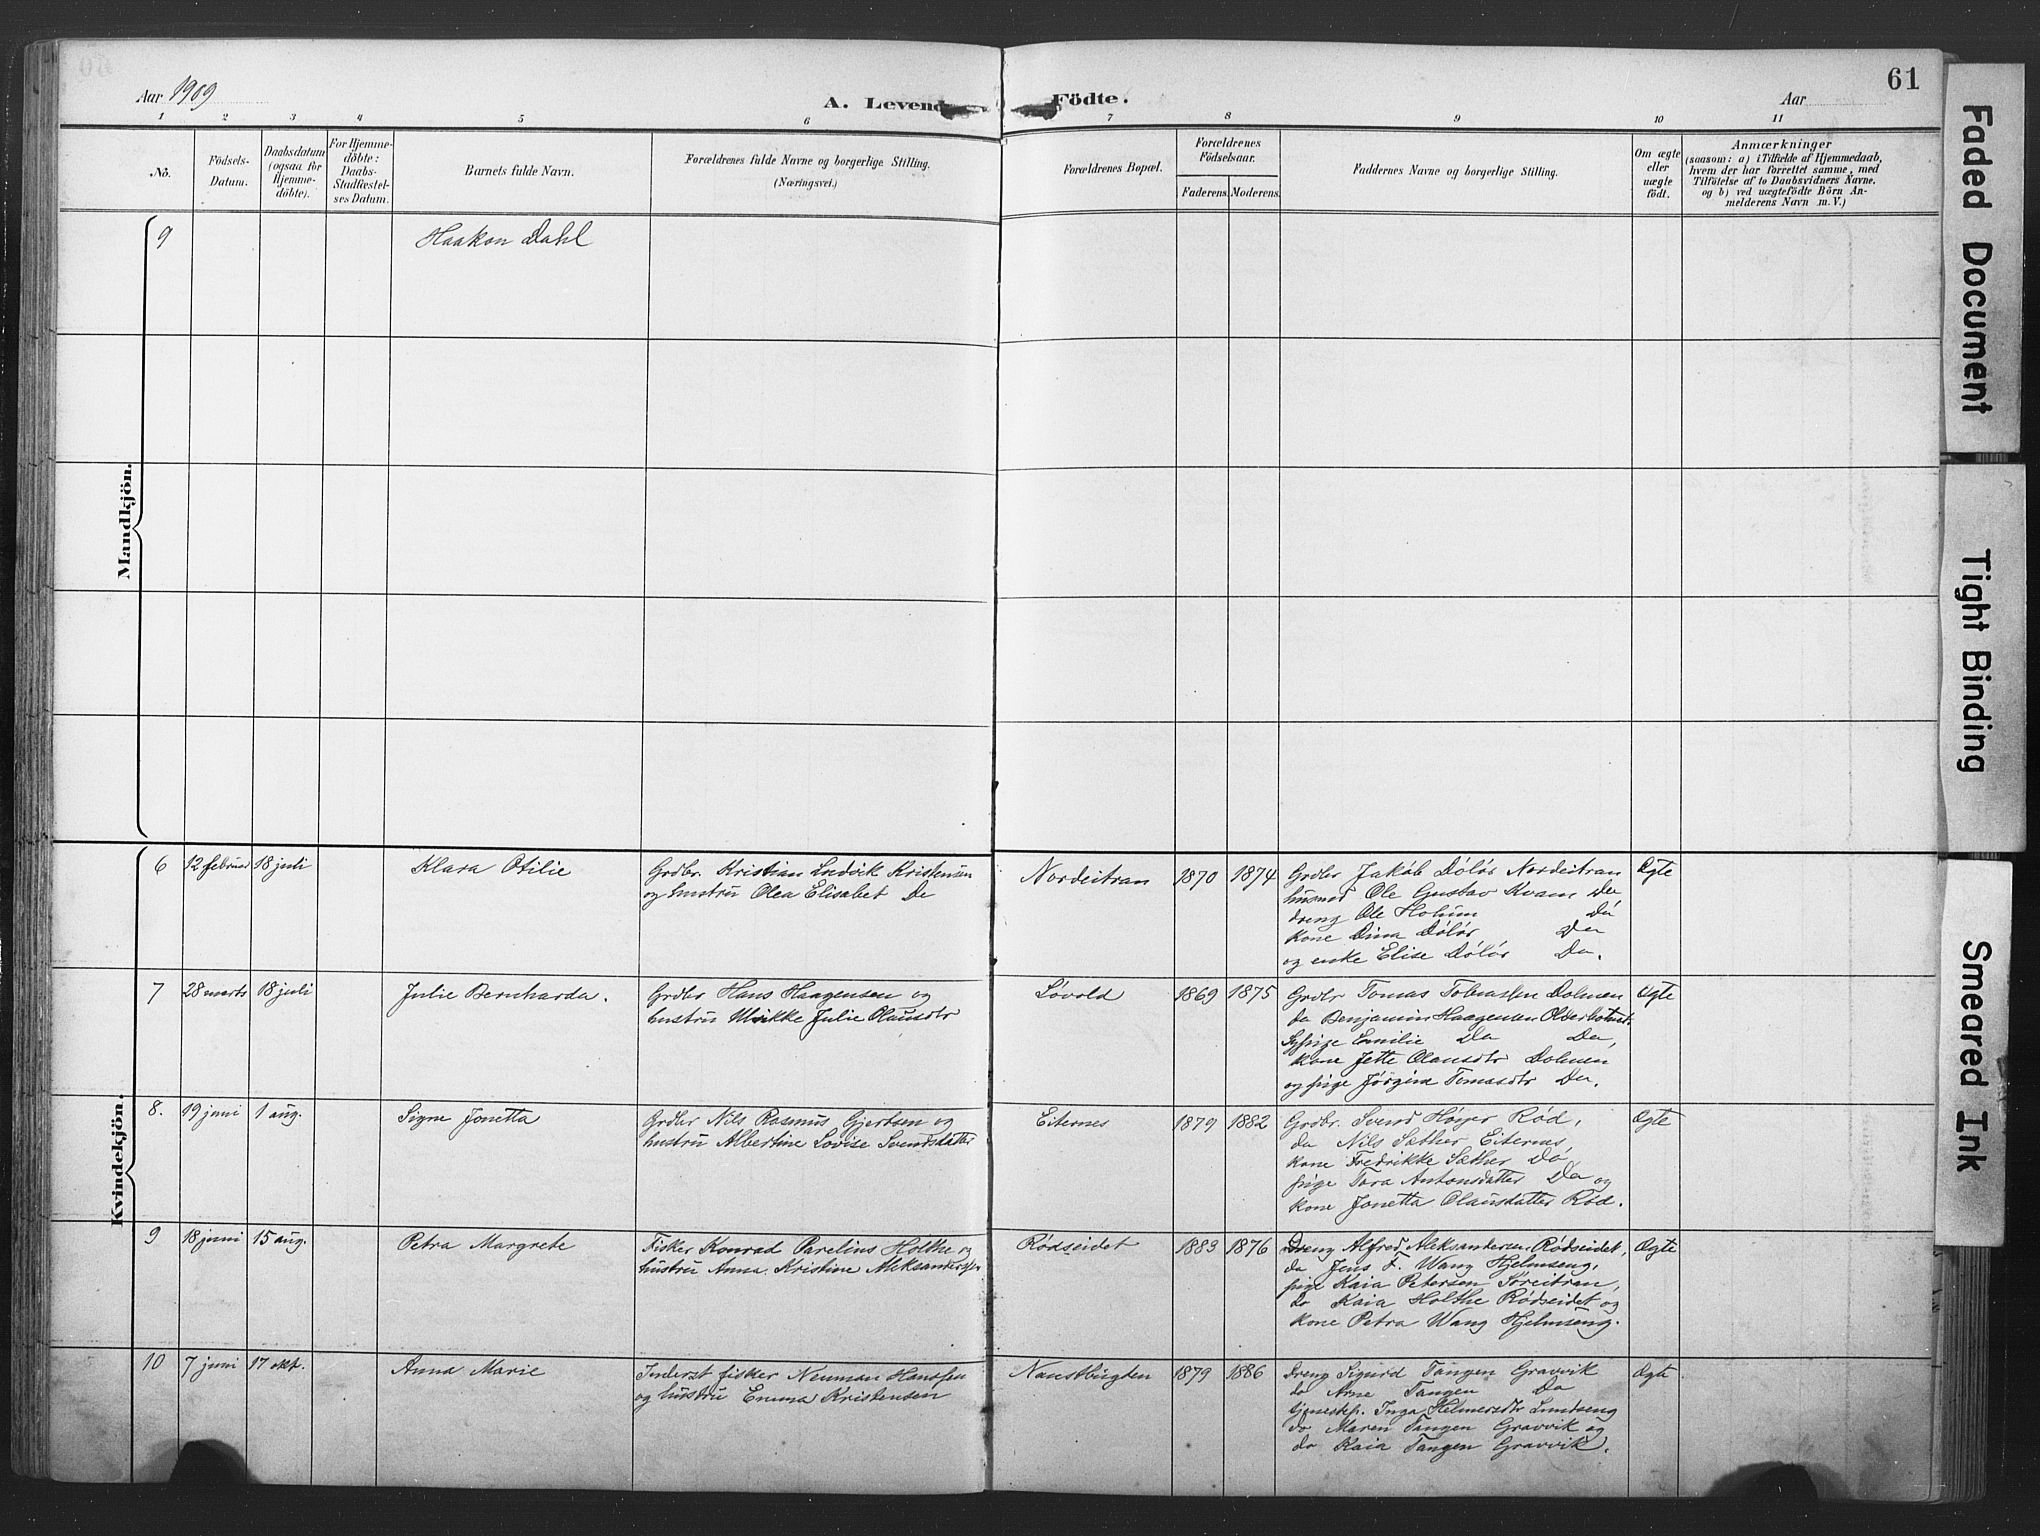 61
Aar 1909
A. Levend
Födte.
Aar
1 2 3 4 5 6 7 8 9 10 11
No.
Födsels-
Datum.
Daabsdatum
(ogsaa for
Hjemme-
döbte).
For Hjemme-
döbte:
Daabs-
Stadfæstel-
ses Datum.
Barnets fulde Navn.
Forældrenes fulde Navne og borgerlige Stilling.
(Næringsvei.)
Forældrenes Bopæl.
Forældrenes
Födselsaar.
Faderens.
Moderens.
Faddernes Navne og borgerlige Stilling.
Om ægte
eller
uægte
födt.
Anmærkninger
(saasom: a) i Tilfælde af Hjemmedaab,
hvem der har forrettet samme, med
Tilföielse af to Daabsvidners Navne,
og b) ved uægtefödte Börn An-
melderens Navn m. V.)
Mandkjön.
9
Haakon Dahl
Kvindekjön.
6
12 februar
18 juli
Klara Otilie
Grdbr. Kristian Ludvik Kristensen
og hustru Olea Elisabet Do
Nordeitran
1870
1874
Grdbr Jakob Döløs Nordeitran
husmd Ole Gustav Kvam Do
dreng Ole Holum Do
kone Dina Döløs Do
og enke Elise Döløs Do.
Ægte
7
28 marts
18 juli
Julie Bernharda.
Grdbr Hans Haagensen og
hustru Ulrikke Julie Olausdtr
Løvold
1869
1875
Grdbr Tomas Tobiassen Dolmen
do Benjamin Haagensen
pige Emilie Do Do,
kone Jette Olausdtr Dolmen
og pige Jørgine Tomasdtr Do.
Ægte
8.
19 juni
1 aug.
Signe Jonetta
Grdbr Nils Rasmus Gjertsen og
hustru Albertine Lovise Svendsdatter
Eiternes
1879
1882
Grdbr. Svend Høyer Rød,
do Nils Sæther Eiternes,
kone Fredrikke Sæther Do
pige Tora Antonsdatter Do og
kone Jonetta Olausdatter Rød.
Ægte
9
18 juni
15 aug.
Petra Margrete
Fisker Konrad Parelius Holthe og
hustru Anna Kristine Aleksandersen
Rødseidet
1883
1876
Dreng Alfred Aleksandersen Rødseidet,
do Jens F. Wang Hjelmseng,
pige Kaia Petersen Søreitran,
do Kaia Holthe Rødseidet og
kone Petra Wang Hjelmseng.
Ægte
10
7 juni
17 okt.
Anna Marie
Inderst fisker Neuman Hanssen
og hustru Emma Kristensen
Naustbugten
1879
1886
Dreng Sigurd Tangen Gravvik
do Arne Tangen Do
tjenestep. Inga Helmersdtr Lundseng
do Maren Tangen Gravvik og
do Kaia Tangen Gravvik.
Ægte
Faded Document
Tight Binding
Smeared Ink